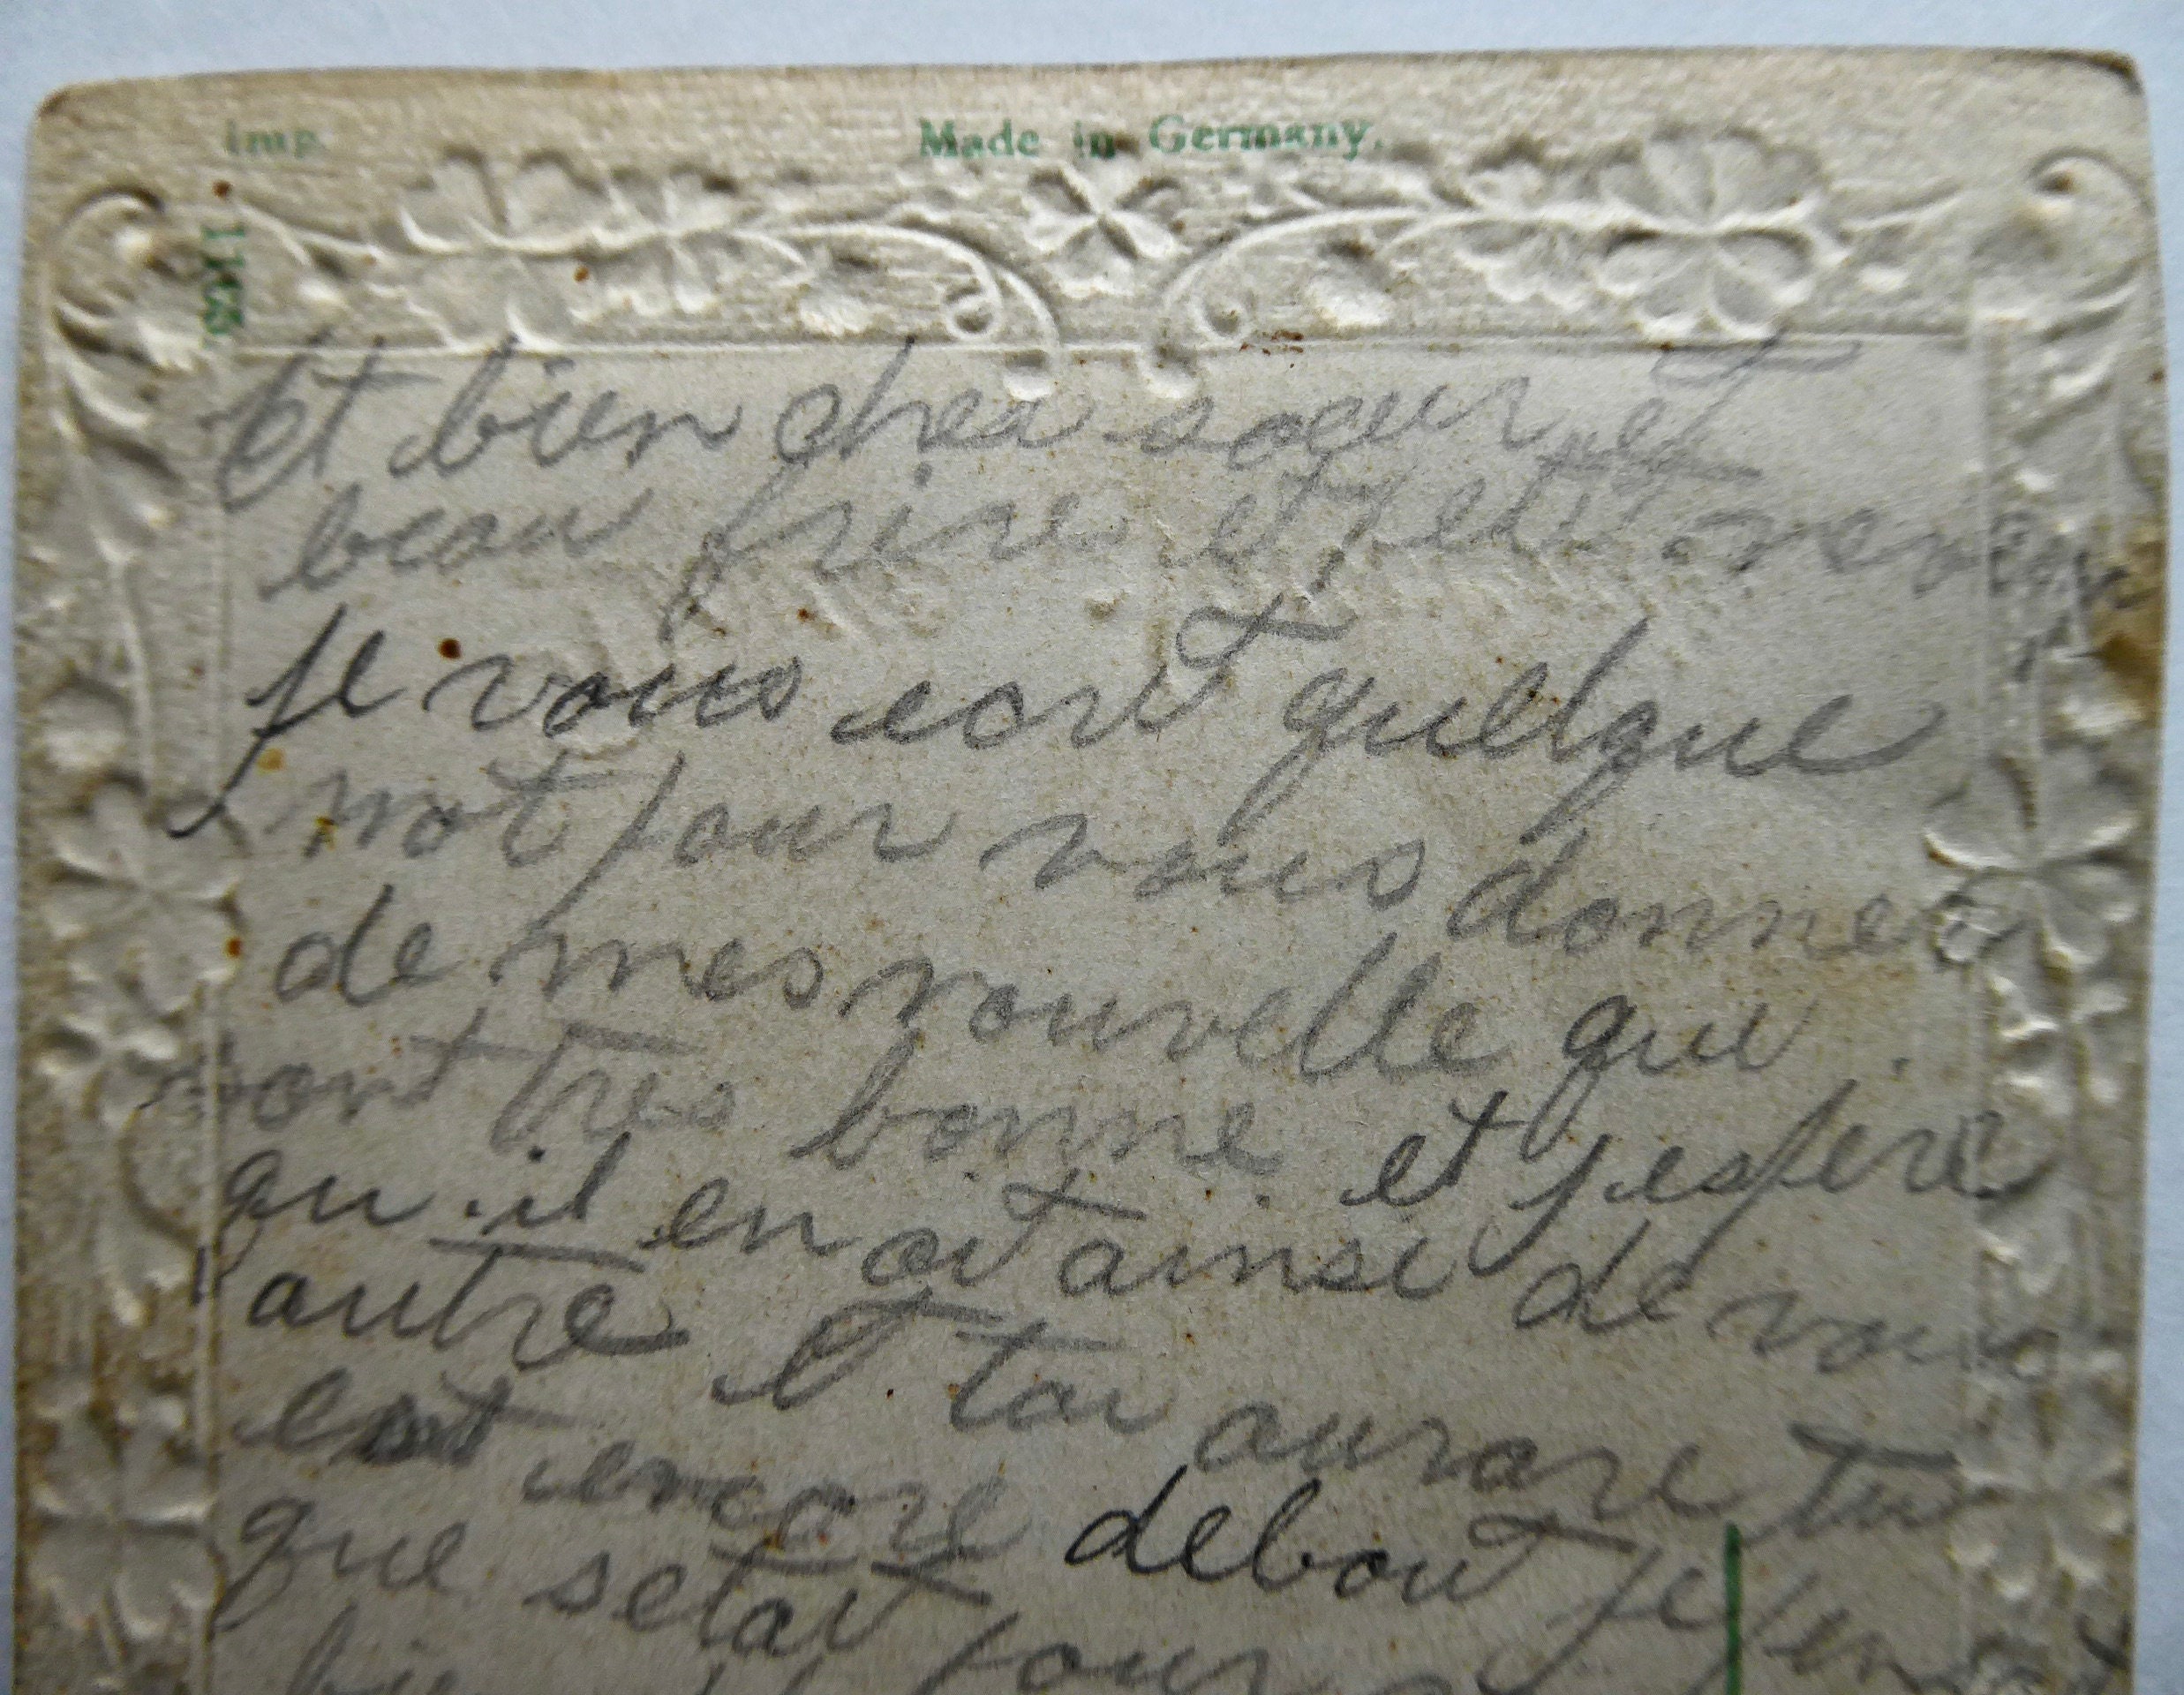 imp.
Made in Germany.
1105
Et bien cher soeur et
beau frire et petit neveux
Je vous ecrit quelque
mot pour vous donner
de mes nouvelle que
sont tres bonne et j espere
qu il en oit ainsi de vous
autre Et toi aurore tu
est encore debout je pense
que setai pour